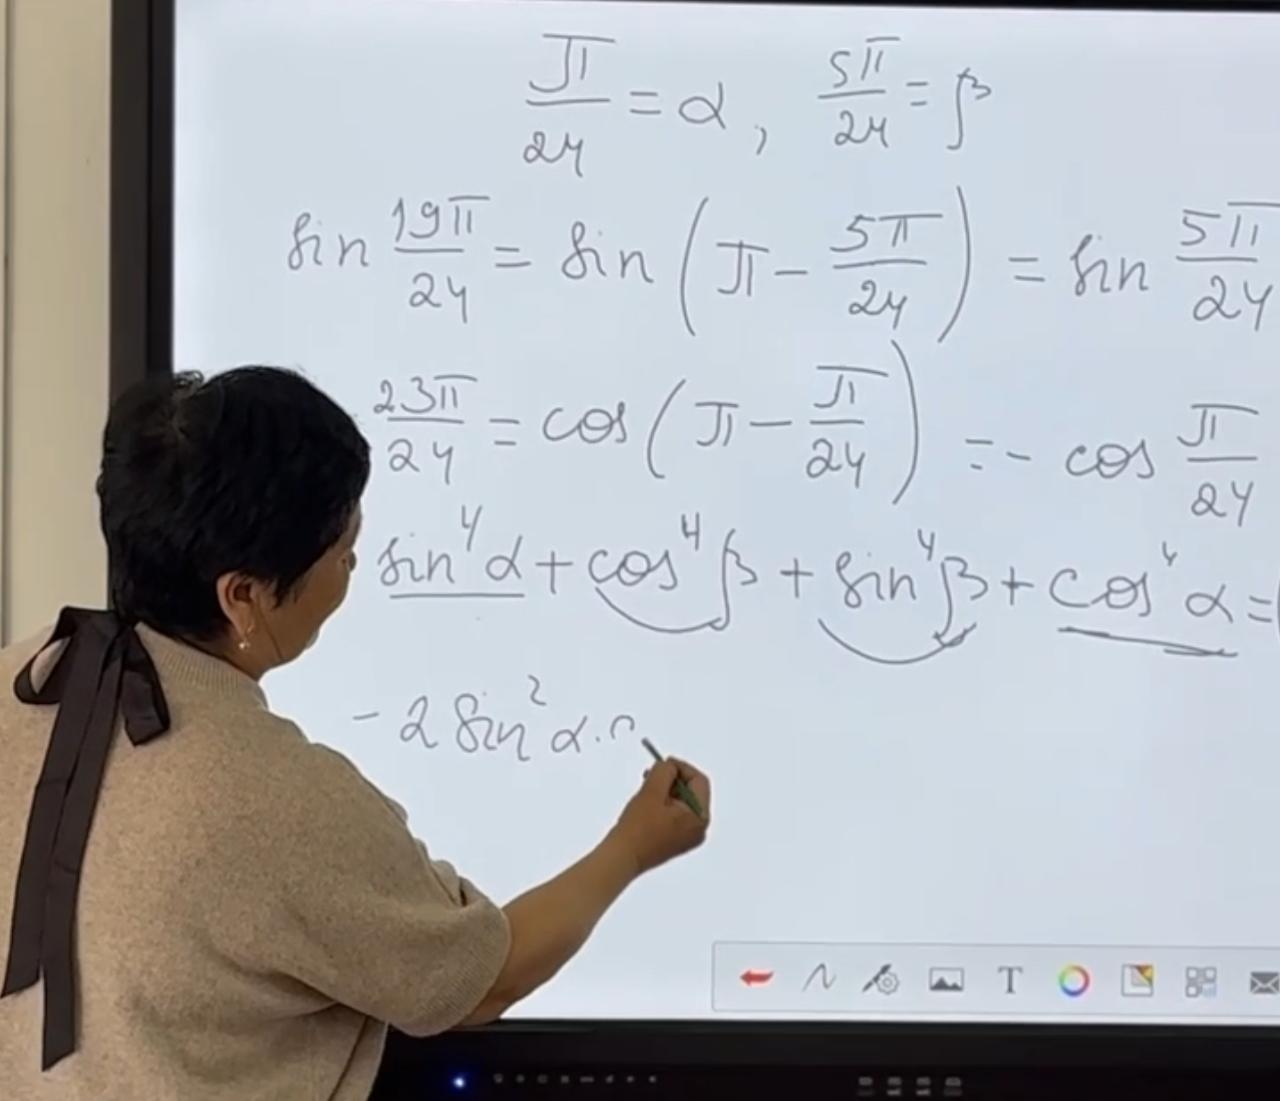 π/24 = α, 5π/24 = β
sin 19π/24 = sin (π - 5π/24) = sin 5π/24
23π/24 = cos (π - π/24) = - cos π/24
sin⁴α + cos⁴β + sin⁴β + cos⁴α =
- 2 sin²α ·
T